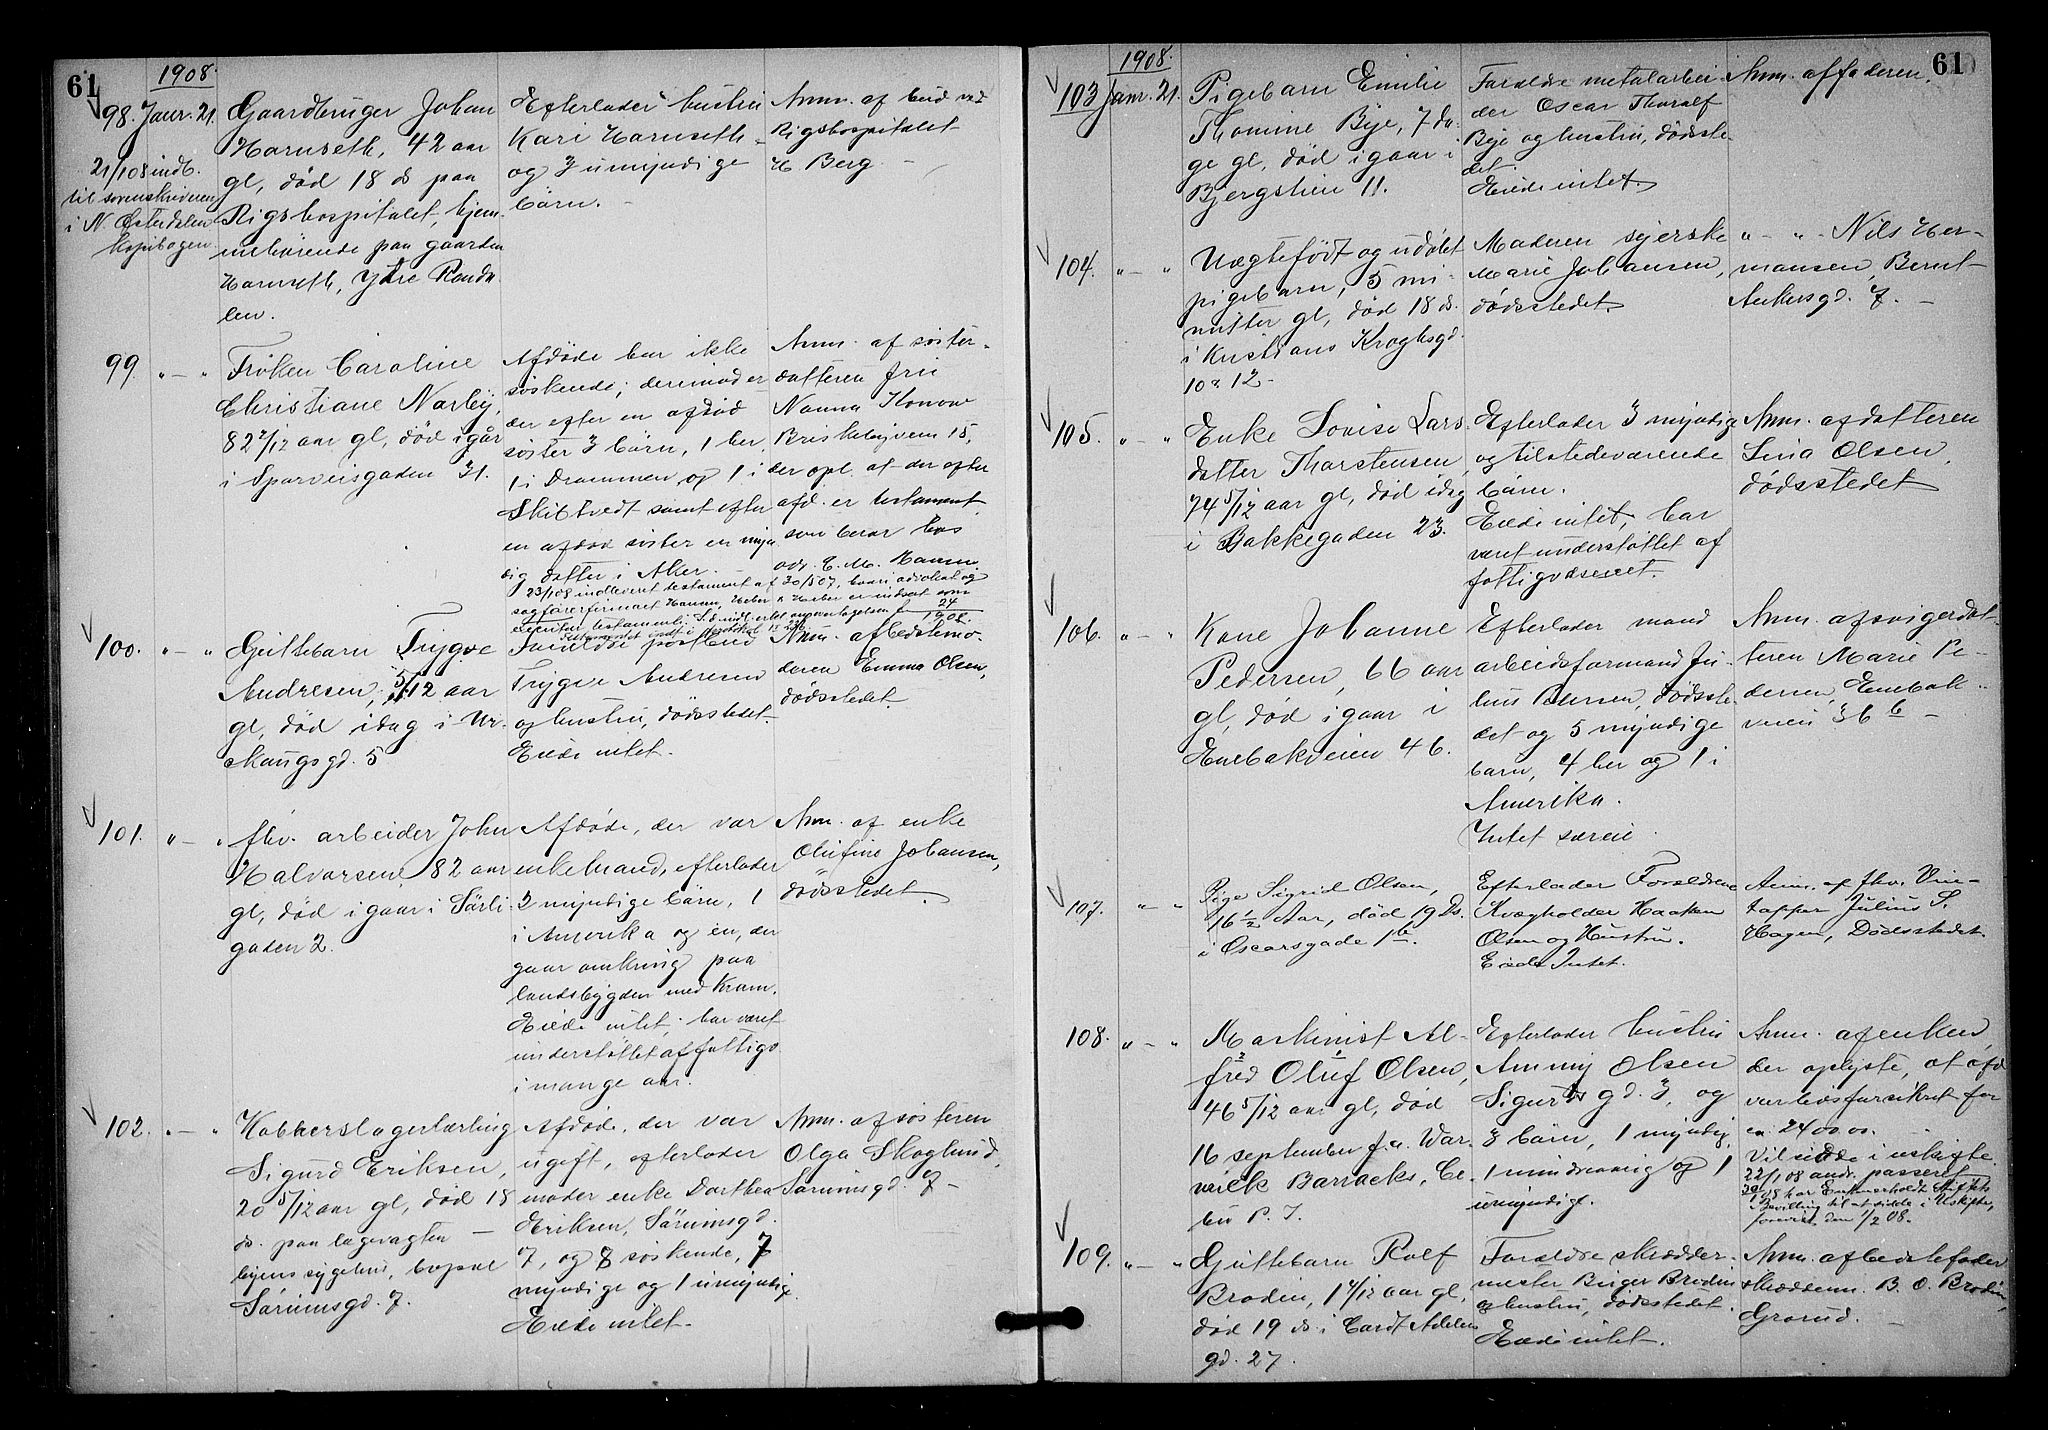 61
1908.
98. Janr. 21.
21/1 08 indb.
til sorenskriveren
i N. Østerdalen
kopibogen
Gaardbruger Johan
Harnseth, 42 aar
gl, død 18 ds paa
Rigshospitalet, hjem-
mehørende paa gaarden
Harnseth, Ytre Renda-
len.
Efterlader hustru
Kari Harnseth
og 3 umyndige
børn.
Anm. af bud ved
Rigshospitalet
H. Berg.
99. " — "
Frøken Caroline
Christiane Narby,
82 2/12 aar gl, død igår
i Sparveisgaden 31.
Afdøde har ikke
søskende; derimod er
der efter en afdød
søster 3 børn, 1 her
1 i Drammen og 1 i
Skibtvedt samt efter
en afdød søster en myn
dig datter i Aker.
Anm. af søster-
datteren fru
Nanna Konow
Briskebyveien 15,
der opl. at der efter
afd. er testament
som beror hos
adv. C. M. Hansen
23/1 08 indleveret testament af 30/5 07, hvori advokat og
sagførerfirmaet Hansen, Heber & Heber er indsat som
executor testamenti. S. d. indb. ertet anmærkgelsen f. 24/1908.
Testamentet indt i protokol 12 236.
100. " — "
Guttebarn Trygve
Andresen, 5/12 aar
gl, død idag i Ur-
skougsgd. 5
Forældre postbud
Trygve Andresen
og hustru, dødsstedet.
Eiede intet.
Anm. af bedstemo-
deren Emma Olsen,
dødsstedet.
101. " — "
fhv. arbeider John
Halvorsen, 82 aar
gl, død igaar i Sørli-
gaden 2.
Afdøde, der var
enkemand, efterlader
2 myndige børn, 1
i Amerika og en, der
gaar omkring paa
landsbygden med Kram.
Eiede intet; har været
understøttet af fattigv.
i mange aar.
Anm. af enke
Olufine Johansen,
dødsstedet.
102. " — "
Kobberslagerlærling
Sigurd Eriksen,
20 5/12 aar gl, død 18
ds. paa lægevagten —
byens sygehus, bopæl
Sørumsgd. 7.
Afdøde, der var
ugift, efterlader
moder enke Dorthea
Eriksen, Sørumsgd.
7, og 8 søskende, 7
myndige og 1 umyndig.
Eiede intet.
Anm. af søsteren
Olga Skoglund,
Sørumsgd. 7 —
61
1908.
103 Janr. 21.
Pigebarn Emilie
Thomine Bye, 7 da-
ge gl, død igaar i
Bjergstien 11.
Forældre metalarbei-
der Oscar Thoralf
Bye og hustru, dødsste-
det.
Eiede intet.
Anm. af faderen.
104. " — "
Uægtefødt og udøbt
pigebarn, 5 mi-
nutter gl, død 18 ds.
i Kristians Kroghsgd.
10 & 12 —
Moderen syerske
Marie Johansen,
dødsstedet.
" — " — Nils Her-
mansen, Bernt
Ankersgd. 7. —
105. " — "
Enke Lovise Lars-
datter Thorstensen,
74 5/12 aar gl, død idag
i Bakkegaden 23.
Efterlader 3 myndige
og tilstedeværende
børn.
Eiede intet, har
været understøttet af
fattigvæsenet.
Anm. af datteren
Lina Olsen,
dødsstedet
106. " — "
Kone Johanne
Pedersen, 66 aar
gl, død igaar i
Enebakveien 46.
Efterlader mand
arbeidsformand Ju-
lius Pedersen, dødsste-
det og 5 myndige
barn, 4 her og 1 i
Amerika.
Intet særeie.
Anm. af svigerdat-
teren Marie Pe-
dersen, Enebak-
veien 36 b —
107. " — "
Pige Sigrid Olsen,
16 1/2 Aar, død 19 Ds.
i Oscarsgade 1 b.
Efterlader Forældrene
Kvægholder Haaken
Olsen og Hustru.
Eiede Intet.
Anm. af fhv. Vin-
tapper Julius S.
Hagen, Dødsstedet.
108. " — "
Maskinist Al-
fred Oluf Olsen,
46 5/12 aar gl, død
16 september f. a. War-
weilk Barracks, Ce-
bu P. I.
Efterlader hustru
Ammy Olsen
Sigurds gd. 3, og
3 børn, 1 myndig,
1 mindreaarig og 1
umyndige.
Anm. af enken,
der oplyste, at afd
var livsforsikret for
ca. 2400.00.
Vil sidde i uskifte.
22/1 08 andr. passeret
30/1 08 har Enkens erholdt Skifterets
Bevilling til at sidde i Uskifte,
forevist den 1/2 08.
109. " — "
Guttebarn Rolf
Brodin, 1 4/12 aar gl,
død 19 ds. i Cordt Adelers
gd. 27.
Forældre skrædder-
mester Birger Brodin
og hustru, dødsstedet.
Eiede intet.
Anm. af bedstefader
skræddenn. B. O. Brodin,
Grorud.